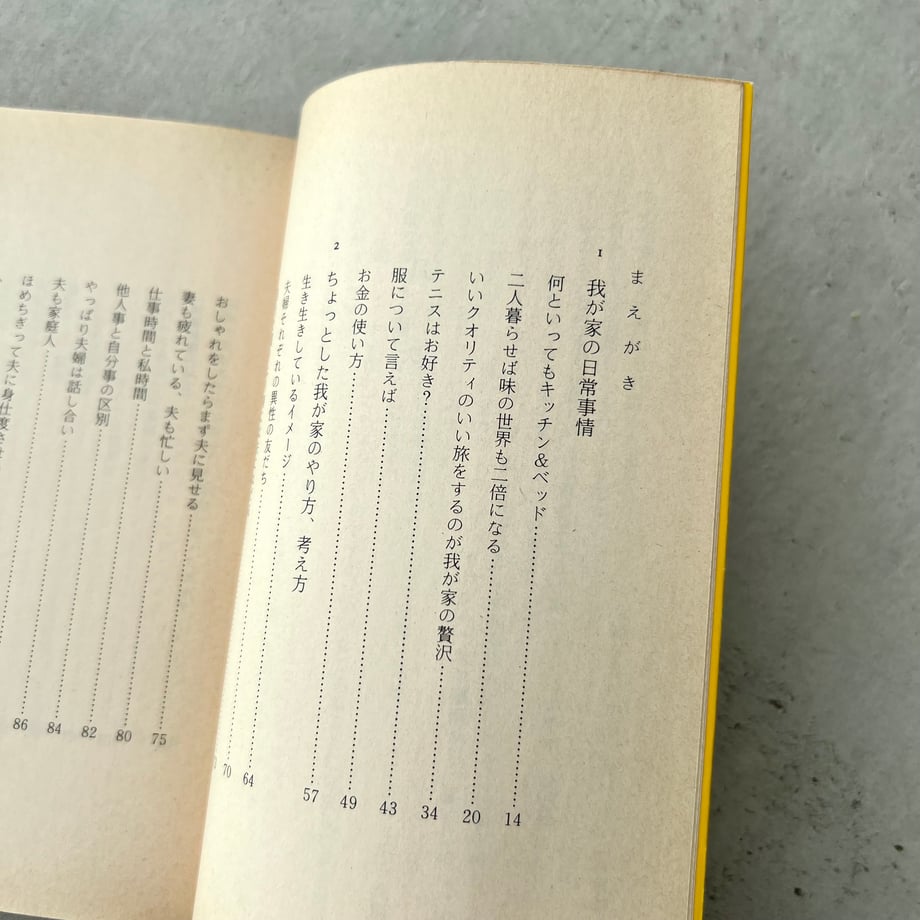 まえがき
1 我が家の日常事情
何といってもキッチン&ベッド……14
二人暮らせば味の世界も二倍になる……20
いいクオリティのいい旅をするのが我が家の贅沢……34
テニスはお好き?……43
服について言えば……49
お金の使い方……57
2 ちょっとした我が家のやり方、考え方
生き生きしているイメージ……64
夫婦それぞれの異性の友だち……70
おしゃれをしたらまず夫に見せる……75
妻も疲れている、夫も忙しい……80
仕事時間と私時間……82
他人事と自分事の区別……84
やっぱり夫婦は話し合い……86
夫も家庭人……
ほめちぎって夫に身仕度させ